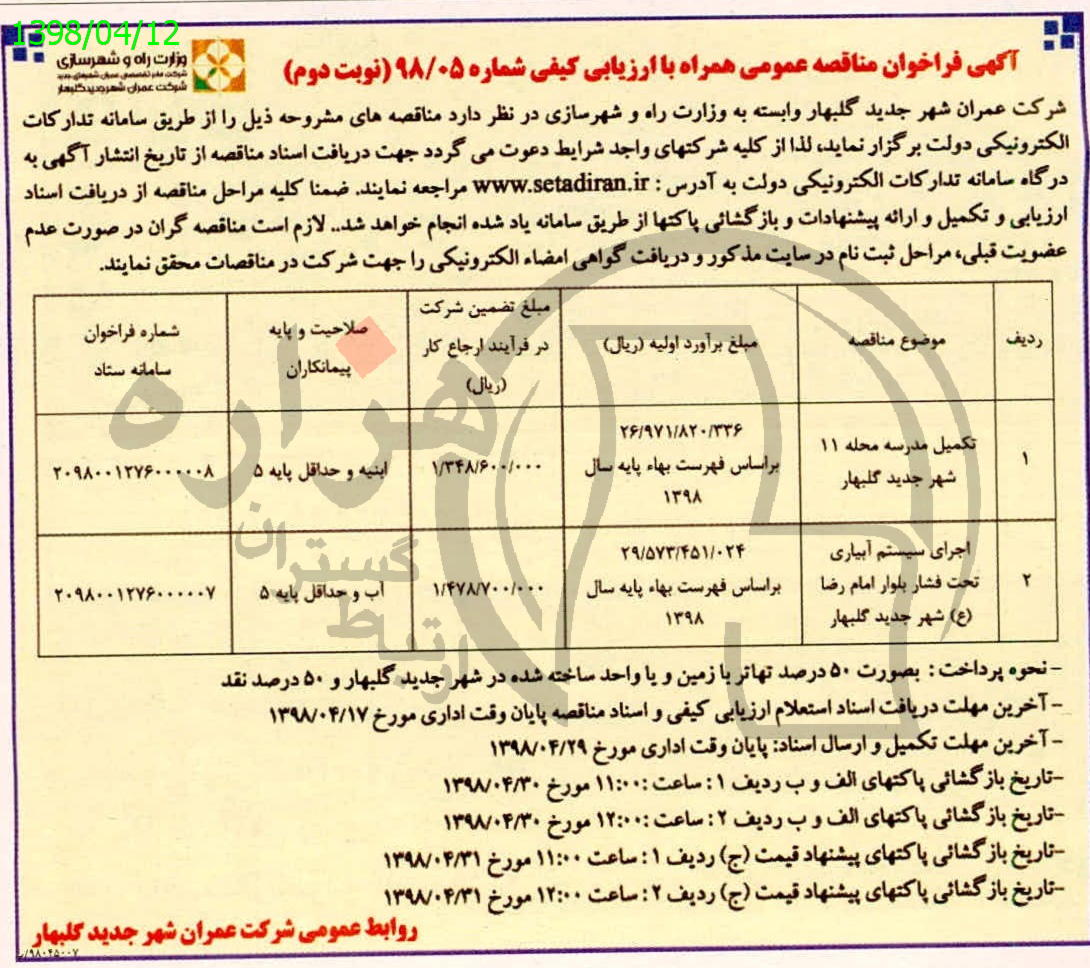 1398/04/12
وزارت راه و شهرسازی
شرکت مادر تخصصی عمران شهرهای جدید
شرکت عمران شهر جدید گلبهار
آگهی فراخوان مناقصه عمومی همراه با ارزیابی کیفی شماره ۹۸/۰۵ (نوبت دوم)
شرکت عمران شهر جدید گلبهار وابسته به وزارت راه و شهرسازی در نظر دارد مناقصه های مشروحه ذیل را از طریق سامانه تدارکات
الکترونیکی دولت برگزار نماید، لذا از کلیه شرکتهای واجد شرایط دعوت می گردد جهت دریافت اسناد مناقصه از تاریخ انتشار آگهی به
درگاه سامانه تدارکات الکترونیکی دولت به آدرس : www.setadiran.ir مراجعه نمایند. ضمنا کلیه مراحل مناقصه از دریافت اسناد
ارزیابی و تکمیل و ارائه پیشنهادات و بازگشائی پاکتها از طریق سامانه یاد شده انجام خواهد شد.. لازم است مناقصه گران در صورت عدم
عضویت قبلی، مراحل ثبت نام در سایت مذکور و دریافت گواهی امضاء الکترونیکی را جهت شرکت در مناقصات محقق نمایند.
ردیف
موضوع مناقصه
مبلغ برآورد اولیه (ریال)
مبلغ تضمین شرکت
در فرآیند ارجاع کار
(ریال)
صلاحیت و پایه
پیمانکاران
شماره فراخوان
سامانه ستاد
۱
تکمیل مدرسه محله ۱۱
شهر جدید گلبهار
۲۶/۹۷۱/۸۲۰/۳۳۶
براساس فهرست بهاء پایه سال
۱۳۹۸
۱/۳۴۸/۶۰۰/۰۰۰
ابنیه و حداقل پایه ۵
۲۰۹۸۰۰۱۲۷۶۰۰۰۰۰۸
۲
اجرای سیستم آبیاری
تحت فشار بلوار امام رضا
(ع) شهر جدید گلبهار
۲۹/۵۷۳/۴۵۱/۰۲۴
براساس فهرست بهاء پایه سال
۱۳۹۸
۱/۴۷۸/۷۰۰/۰۰۰
آب و حداقل پایه ۵
۲۰۹۸۰۰۱۲۷۶۰۰۰۰۰۷
- نحوه پرداخت : بصورت ۵۰ درصد تهاتر با زمین و یا واحد ساخته شده در شهر جدید گلبهار و ۵۰ درصد نقد
- آخرین مهلت دریافت اسناد استعلام ارزیابی کیفی و اسناد مناقصه پایان وقت اداری مورخ ۱۳۹۸/۰۴/۱۷
- آخرین مهلت تکمیل و ارسال اسناد: پایان وقت اداری مورخ ۱۳۹۸/۰۴/۲۹
-تاریخ بازگشائی پاکتهای الف و ب ردیف ۱ : ساعت :۱۱:۰۰ مورخ ۱۳۹۸/۰۴/۳۰
-تاریخ بازگشائی پاکتهای الف و ب ردیف ۲ : ساعت :۱۲:۰۰ مورخ ۱۳۹۸/۰۴/۳۰
-تاریخ بازگشائی پاکتهای پیشنهاد قیمت (ج) ردیف ۱ : ساعت ۱۱:۰۰ مورخ ۱۳۹۸/۰۴/۳۱
-تاریخ بازگشائی پاکتهای پیشنهاد قیمت (ج) ردیف ۲ : ساعت ۱۲:۰۰ مورخ ۱۳۹۸/۰۴/۳۱
روابط عمومی شرکت عمران شهر جدید گلبهار
هزاره
گستران
ارتباط